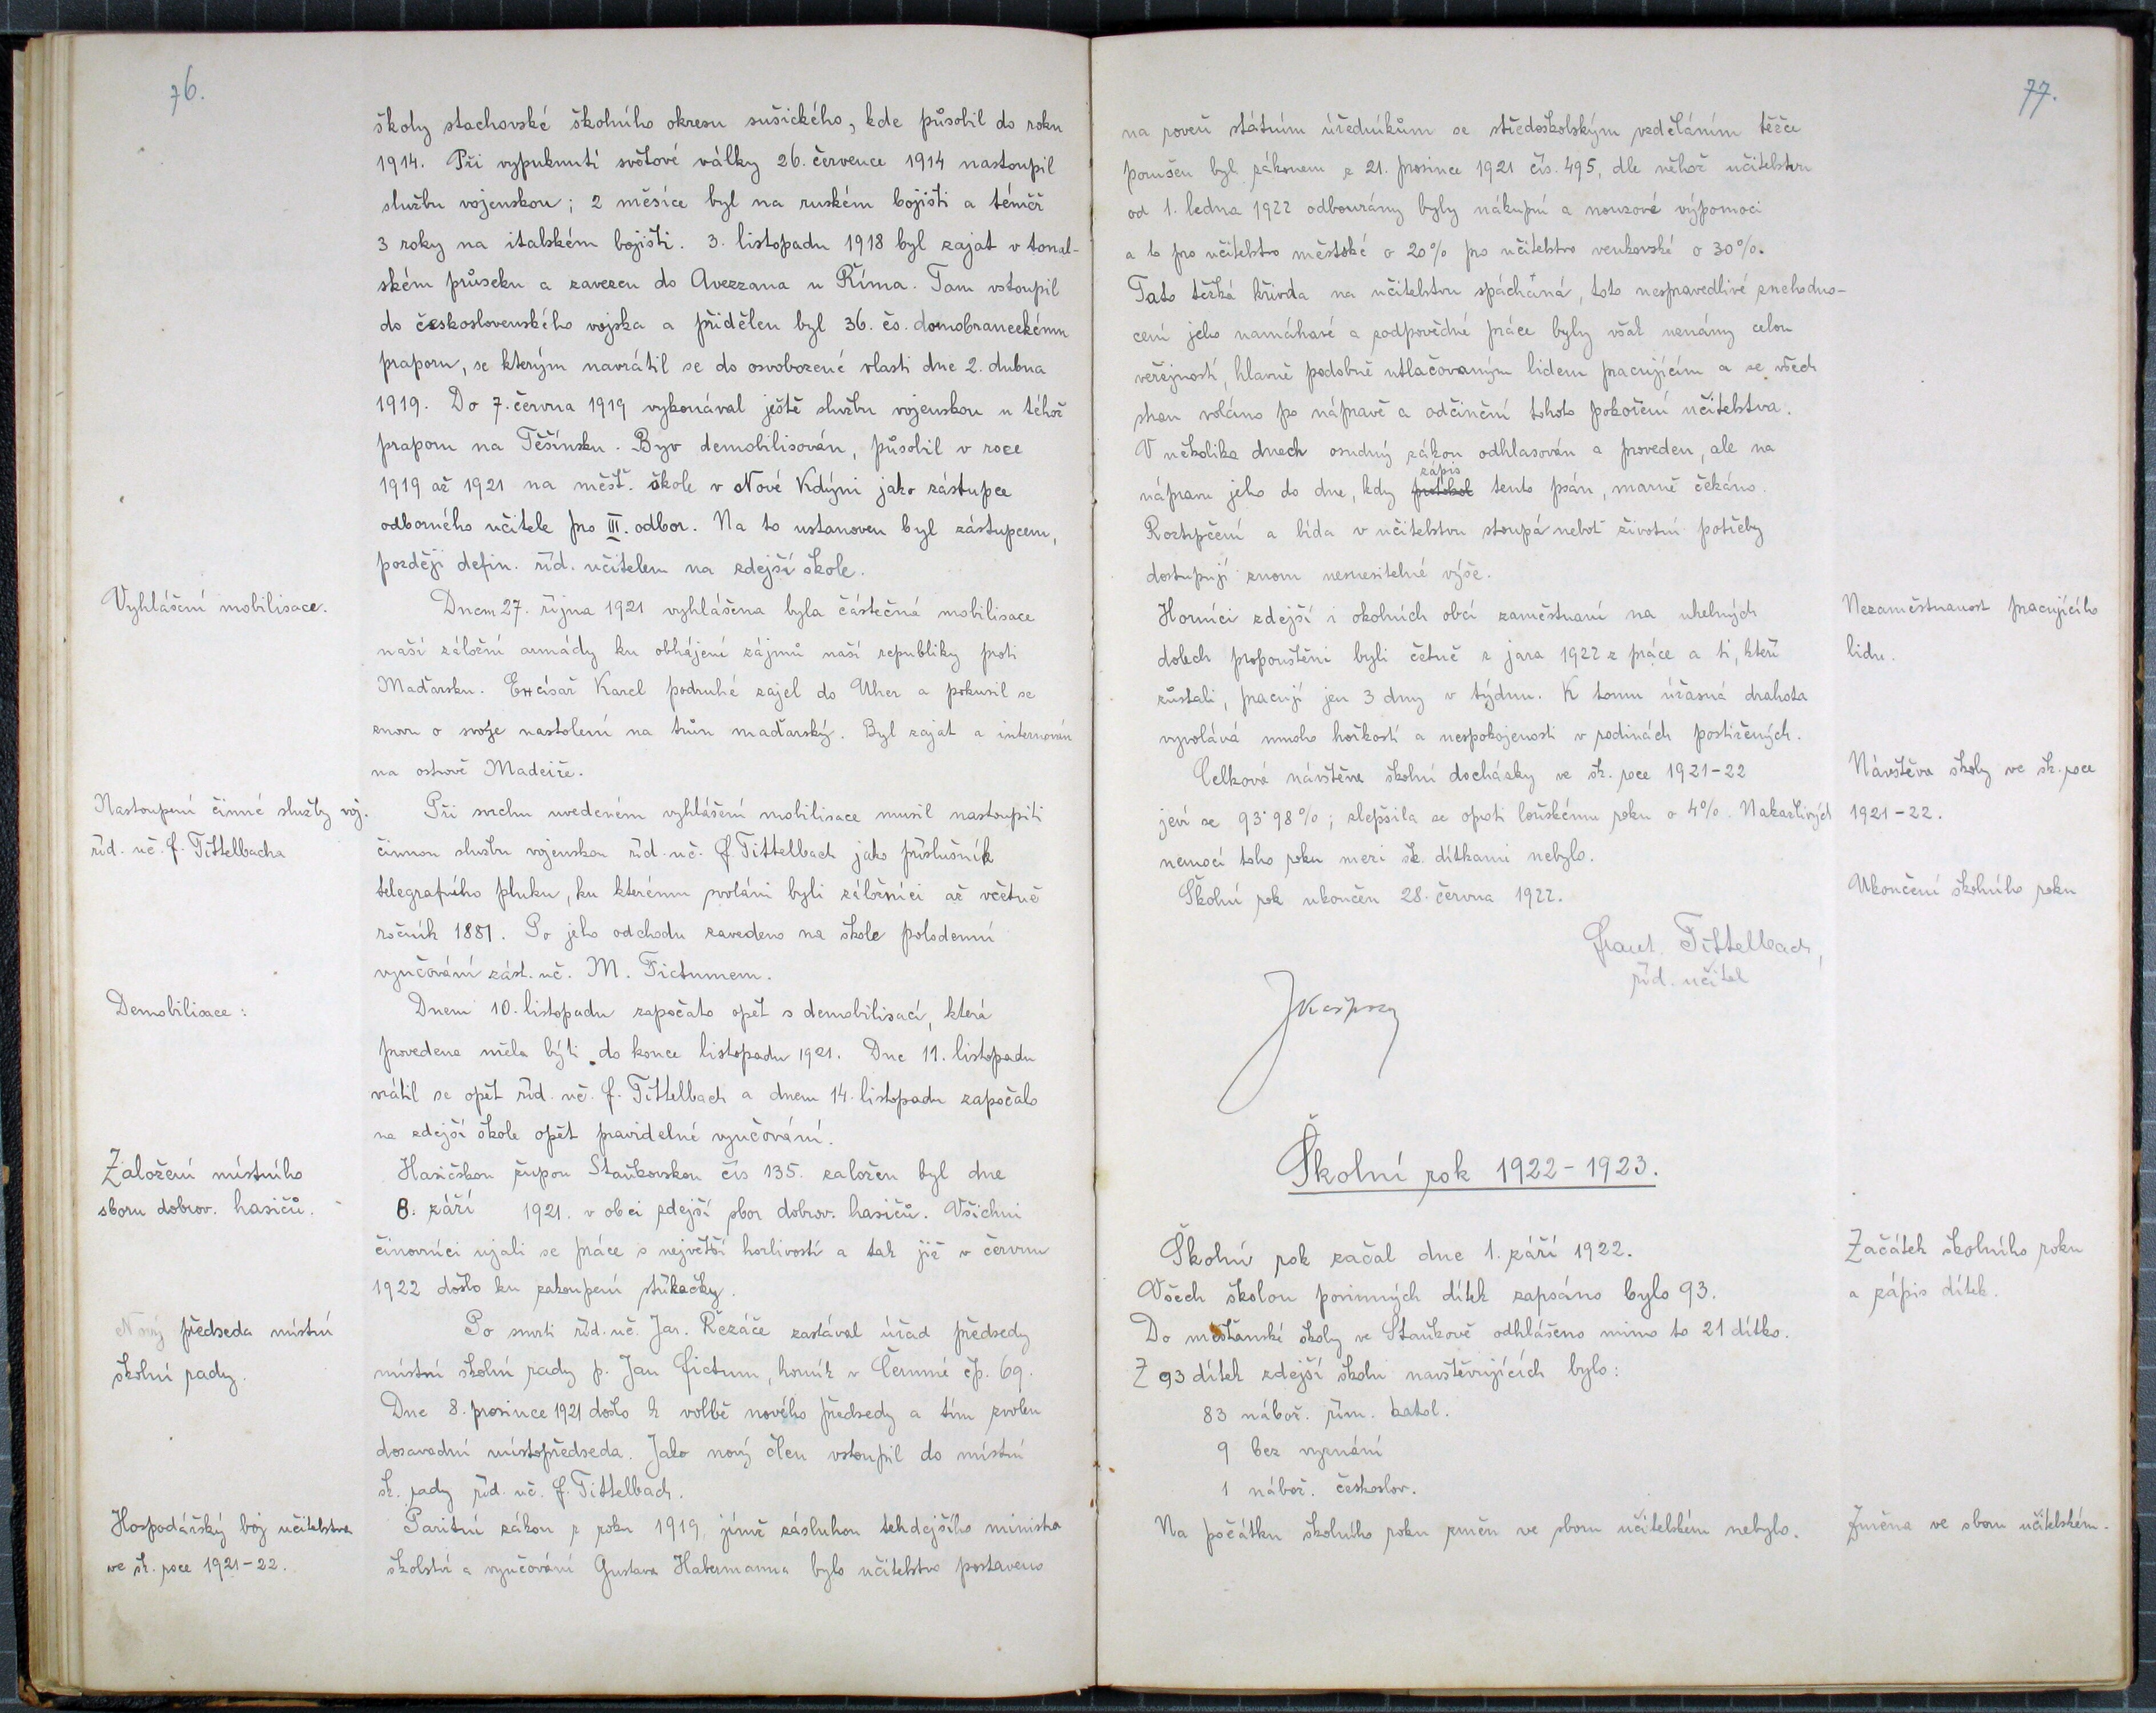 76.
školy stachovské školního okresu sušického, kde působil do roku
1914. Při vypuknutí světové války 26. července 1914 nastoupil
službu vojenskou; 2 měsíce byl na ruském bojišti a téměř
3 roky na italském bojišti. 3. listopadu 1918 byl zajat v tonal-
ském průseku a zavezen do Avezzana u Říma. Tam vstoupil
do československého vojska a přidělen byl 36. čs. domobraneckému
praporu, se kterým navrátil se do osvobozené vlasti dne 2. dubna
1919. Do 7. června 1919 vykonával ještě službu vojenskou u téhož
praporu na Těšínsku. Byv demobilisován, působil v roce
1919 až 1921 na měšť. škole v Nové Kdýni jako zástupce
odborného učitele pro III. odbor. Na to ustanoven byl zástupcem,
později defin. říd. učitelem na zdejší škole.
Vyhlášení mobilisace.
Dnem 27. října 1921 vyhlášena byla částečná mobilisace
naší záložní armády ku obhájení zájmů naší republiky proti
Maďarsku. Excísař Karel podruhé zajel do Uher a pokusil se
znovu o svoje nastolení na trůn maďarský. Byl zajat a internován
na ostrově Madeiře.
Nastoupení činné služby voj.
říd. uč. F. Tittelbacha
Při svrchu uvedeném vyhlášení mobilisace musil nastoupiti
činnou službu vojenskou říd. uč. F. Tittelbach jako příslušník
telegrafního pluku, ku kterému svoláni byli záložníci až včetně
ročník 1881. Po jeho odchodu zavedeno na škole polodenní
vyučování zást. uč. M. Fictumem.
Demobilisace:
Dnem 10. listopadu započato opět s demobilisací, která
provedena měla býti do konce listopadu 1921. Dne 11. listopadu
vrátil se opět říd. uč. F. Tittelbach a dnem 14. listopadu započalo
na zdejší škole opět pravidelné vyučování.
Založení místního
sboru dobrov. hasičů.
Hasičskou župou Staňkovskou čís 135. založen byl dne
8. září 1921. v obci zdejší sbor dobrov. hasičů. Všichni
činovníci ujali se práce s největší horlivostí a tak již v červnu
1922 došlo ku zakoupení stříkačky.
Nový předseda místní
školní rady.
Po smrti říd. uč. Jar. Řezáče zastával úřad předsedy
místní školní rady p. Jan Fictum, horník v Černmé čp. 69.
Dne 8. prosince 1921 došlo k volbě nového předsedy a tím zvolen
dosavadní místopředseda. Jako nový člen vstoupil do místní
šk. rady říd. uč. F. Tittelbach.
Hospodářský boj učitelstva
ve šk. roce 1921-22.
Paritní zákon z roku 1919, jímž zásluhou tehdejšího ministra
školství a vyučování Gustava Habermanna bylo učitelstvo postaveno
77.
na roveň státním úředníkům se středoškolským vzděláním těžce
porušen byl zákonem z 21. prosince 1921 čís. 495, dle něhož učitelstvu
od 1. ledna 1922 odbourány byly nákupní a nouzové výpomoci
a to pro učitelstvo městské o 20% pro učitelstvo venkovské o 30%.
Tato těžká křivda na učitelstvu spáchaná, toto nespravedlivé znehodno-
cení jeho namáhavé a zodpovědné práce byly však uznány celou
veřejností, hlavně podobně utlačovaným lidem pracujícím a se všech
stran voláno po nápravě a odčinění tohoto pokoření učitelstva.
V několika dnech osudný zákon odhlasován a proveden, ale na
zápis
nápravu jeho do dne, kdy protokol tento psán, marně čekáno.
Roztrpčení a bída v učitelstvu stoupá neboť životní potřeby
dostupují znovu nesnesitelné výše.
Horníci zdejší i okolních obcí zaměstnaní na uhelných
dolech propouštěni byli četně z jara 1922 z práce a ti, kteří
zůstali, pracují jen 3 dny v týdnu. K tomu úžasná drahota
vyvolává mnoho hořkosti a nespokojenosti v rodinách postižených.
Nezaměstnanost pracujícího
lidu.
Celková návštěva školní docházky ve šk. roce 1921-22
jeví se 93·98%; zlepšila se oproti loňskému roku o 4%. Nakažlivých
nemocí toho roku mezi šk. dítkami nebylo.
Návštěva školy ve šk. roce
1921-22.
Školní rok ukončen 28. června 1922.
Ukončení školního roku
Frant. Tittelbach,
říd. učitel
Školní rok 1922-1923.
Školní rok začal dne 1. září 1922.
Všech školou povinných dítek zapsáno bylo 93.
Do měšťanské školy ve Staňkově odhlášeno mimo to 21 dítko.
Z 93 dítek zdejší školu navštěvujících bylo:
83 nábož. řím. katol.
9 bez vyznání
1 nábož. českoslov.
Začátek školního roku
a zápis dítek.
Na počátku školního roku změn ve sboru učitelském nebylo.
Změna ve sboru učitelském.